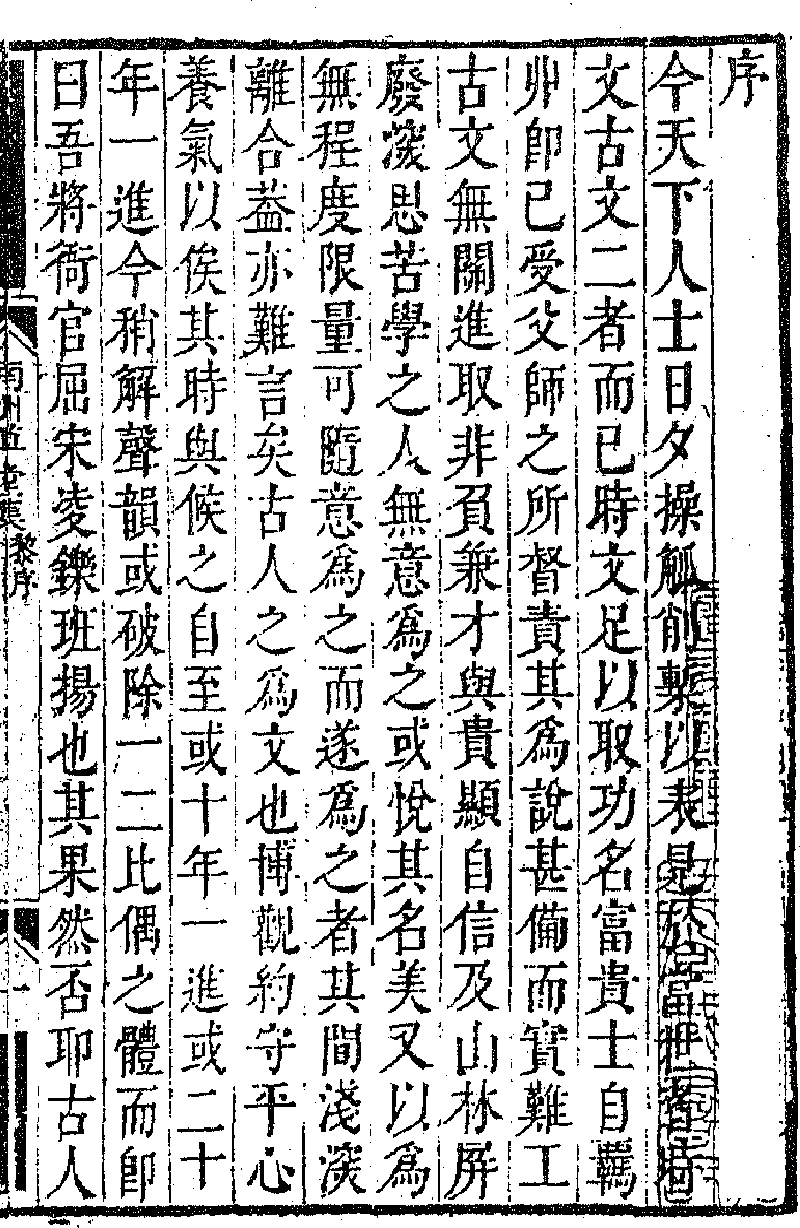 序
今天下人士日夕操觚削槧以表見於當世者時
文古文二者而已時文足以取功名富貴士自羈
丱卽已受父師之所督責其爲說甚備而實難工
古文無關進取非負兼才與貴顯自信及山林屏
廢淡思苦學之人無意爲之或悅其名美又以爲
無程度限量可隨意爲之而遂爲之者其間淺淡
離合葢亦難言矣古人之爲文也博觀約守平心
養氣以俟其時與候之自至或十年一進或二十
年一進今稍解聲韻或破除一二比偶之體而卽
曰吾將衙官屈宋凌鑠班揚也其果然否耶古人
南州草堂集
黎序
一